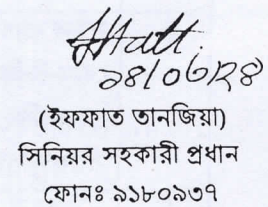 ১৪/০৬/২৪
(ইফফাত তানজিয়া)
সিনিয়র সহকারী প্রধান
ফোনঃ ৯১৮০৯৩৭